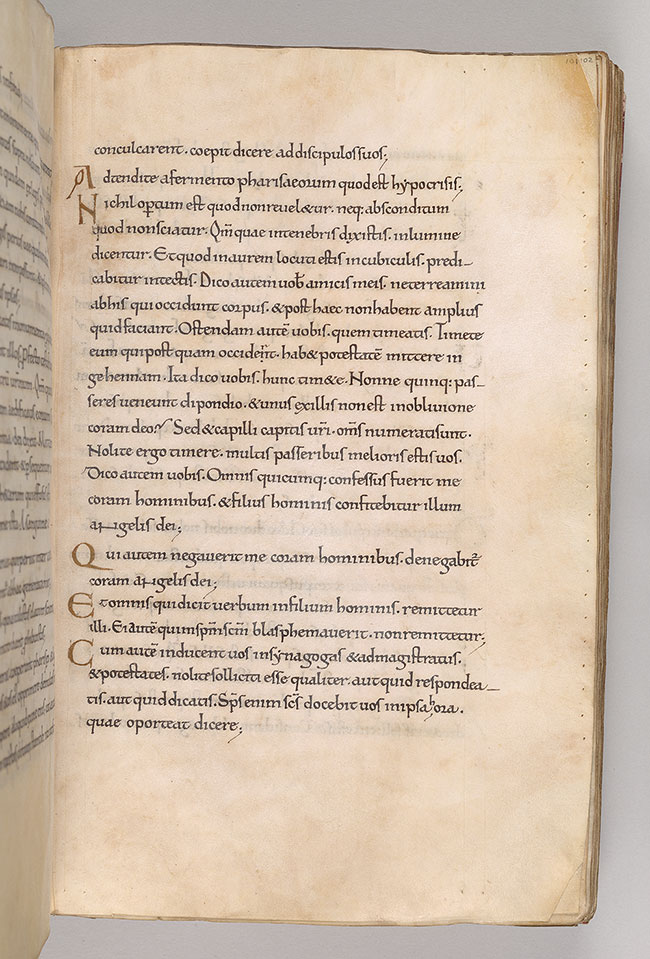 101 102
conculcarent. coepit dicere addiscipulossuos;
Adtendite afermento pharisaeorum quodest hypocrisis;
Nichil opertum est quodnonrevel&ur. neq: absconditum
quod nonsciatur. Qm̄ quae intenebris dixistis. inlumine
dicentur. Et quod inaurem locuti estis incubiculis. predi-
cabitur intectis. Dico autem uob̄ amicis meis. neterreamini
abhis qui occidunt corpus. &post haec nonhabent amplius
quidfaciant. Ostendam autē uobis. quem timeatis. Timete
eum qui post quam occiderit. hab& potestatē mittere in
gehennam. Ita dico uobis. hunc tim&e. Nonne quinq: pas-
seres ueneunt dipondio. &unus exillis nonest inobliuione
coram deo? Sed &capilli capitis ur̄i. om̄s numeratisunt.
Nolite ergo timere. multis passeribus meliores estis uos.
Dico autem uobis. Omnis quicumq: confessus fuerit me
coram hominibus. &filius hominis confitebitur illum
angelis dei;
Qui autem negauerit me coram hominibus. denegabit̄
coram angelis dei;
Et omnis qui dicit uerbum infilium hominis. remittetur
illi. Ei autē quiinspm̄ scm̄ blasphemauerit. nonremittetur;
Cum autē inducent uos insynagogas &admagistratus.
&potestates. nolite solliciti esse qualiter. aut quid respondea-
tis. aut quid dicatis. Sps̄ enim scs̄ docebit uos inipsa hora.
quae oporteat dicere;